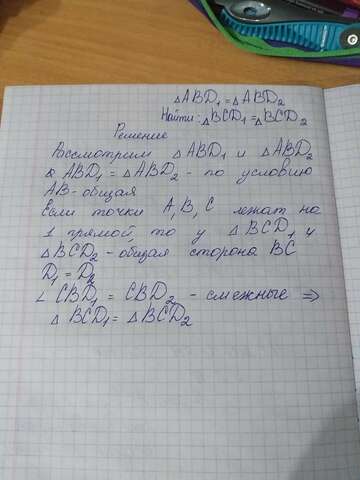 △ABD₁ = △ABD₂
Найти: △BCD₁ = △BCD₂
Решение
Рассмотрим △ABD₁ и △ABD₂
ABD₁ = △ABD₂ - по условию
AB - общая
Если точки A, B, C лежат на
1 прямой, то у △BCD₁ и
△BCD₂ - общая сторона BC
D₁ = D₂
∠ CBD₁ = CBD₂ - смежные ⇒
△ BCD₁ = △ BCD₂